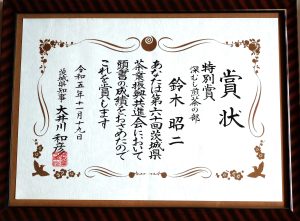 賞状
特別賞
深むし煎茶の部
鈴木昭二
あなたは第六十回茨城県
茶業振興共進会において
頭書の成績をおさめたので
これを賞します
令和五年十一月十九日
茨城県知事 大井川和彦